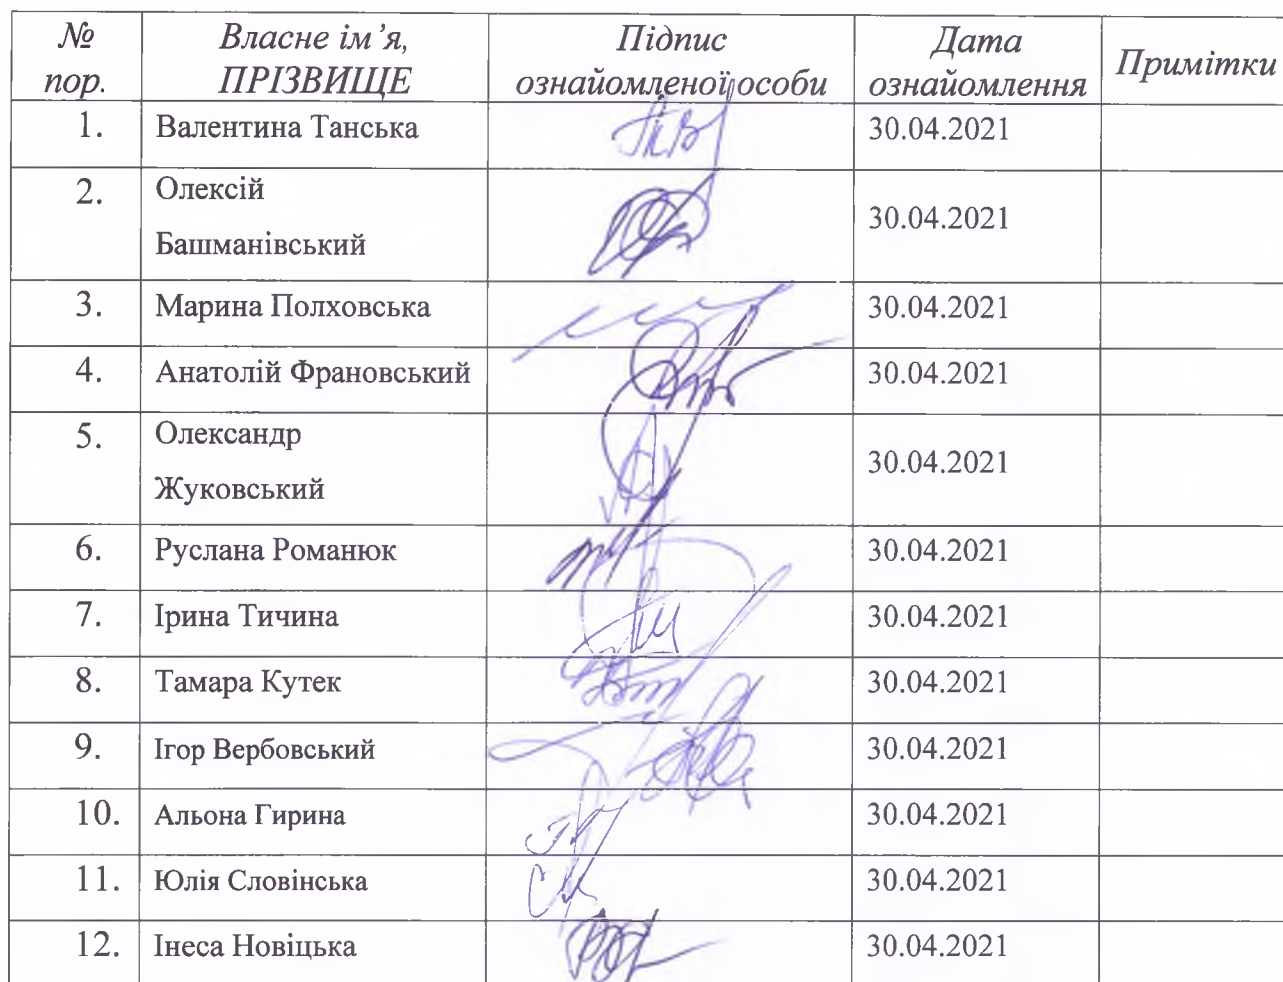 № пор. Власне ім'я, ПРІЗВИЩЕ Підпис ознайомленої особи Дата ознайомлення Примітки
1. Валентина Танська 30.04.2021
2. Олексій Башманівський 30.04.2021
3. Марина Полховська 30.04.2021
4. Анатолій Франовський 30.04.2021
5. Олександр Жуковський 30.04.2021
6. Руслана Романюк 30.04.2021
7. Ірина Тичина 30.04.2021
8. Тамара Кутек 30.04.2021
9. Ігор Вербовський 30.04.2021
10. Альона Гирина 30.04.2021
11. Юлія Словінська 30.04.2021
12. Інеса Новіцька 30.04.2021